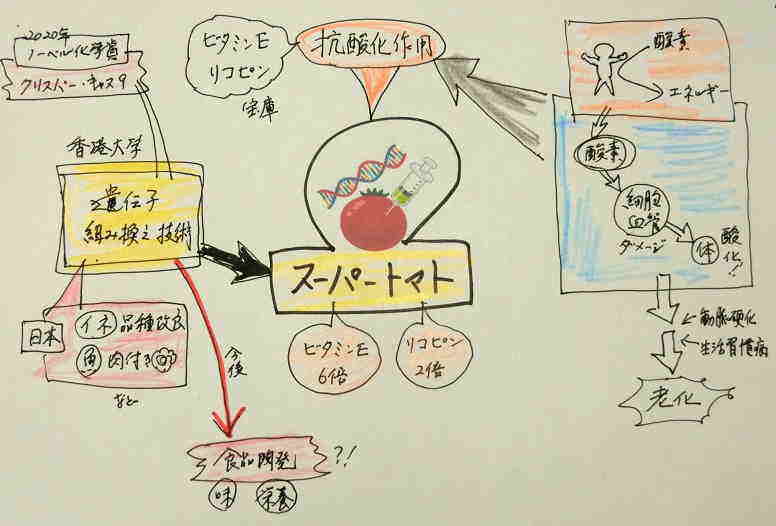 2020年
ノーベル化学賞
クリスパー・キャス9
香港大学
遺伝子
組み換え技術
日本
イネ 品種改良
魚 肉付き
など
今後
食品開発
?!
味 栄養
ビタミンE
リコピン
宝庫
抗酸化作用
スーパートマト
ビタミンE
6倍
リコピン
2倍
酸素
エネルギー
酸素
細胞
血管
ダメージ
体
酸化!!
動脈硬化
生活習慣病
老化